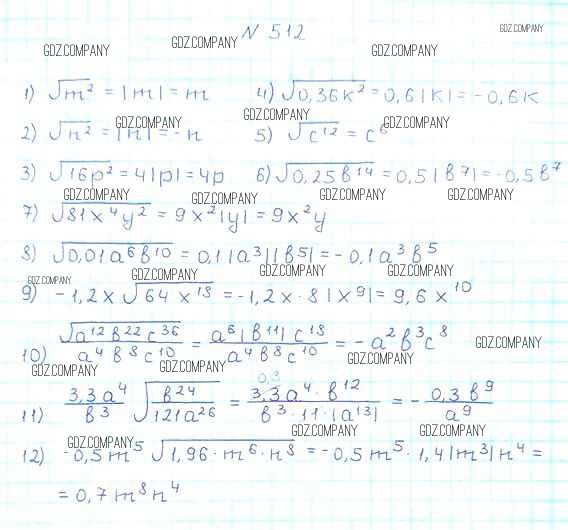 N 512
GDZ.COMPANY GDZ.COMPANY GDZ.COMPANY GDZ.COMPANY
1) √m² = |m| = m 4) √0,36k² = 0,6|k| = -0,6k
GDZ.COMPANY GDZ.COMPANY GDZ.COMPANY
2) √n² = |n| = -n 5) √c¹² = c⁶
3) √16p² = 4|p| = 4p 6) √0,25b¹⁴ = 0,5|b⁷| = -0,5b⁷
GDZ.COMPANY GDZ.COMPANY GDZ.COMPANY GDZ.COMPANY
7) √81x⁴y² = 9x²|y| = 9x²y
8) √0,01a⁶b¹⁰ = 0,1|a³||b⁵| = -0,1a³b⁵
GDZ.COMPANY GDZ.COMPANY GDZ.COMPANY GDZ.COMPANY
9) -1,2x √64x¹⁸ = -1,2x · 8|x⁹| = 9,6x¹⁰
10) √a¹²b²²c³⁶ / a⁴b⁸c¹⁰ = a⁶|b¹¹|c¹⁸ / a⁴b⁸c¹⁰ = -a²b³c⁸
GDZ.COMPANY GDZ.COMPANY GDZ.COMPANY GDZ.COMPANY
0,3
11) 3,3a⁴ / b³ √b²⁴ / 121a²⁶ = 3,3a⁴ · b¹² / b³ · 11 · |a¹³| = - 0,3b⁹ / a⁹
GDZ.COMPANY GDZ.COMPANY GDZ.COMPANY
12) -0,5m⁵ √1,96 · m⁶ · n⁸ = -0,5m⁵ · 1,4|m³|n⁴ =
= 0,7m⁸n⁴